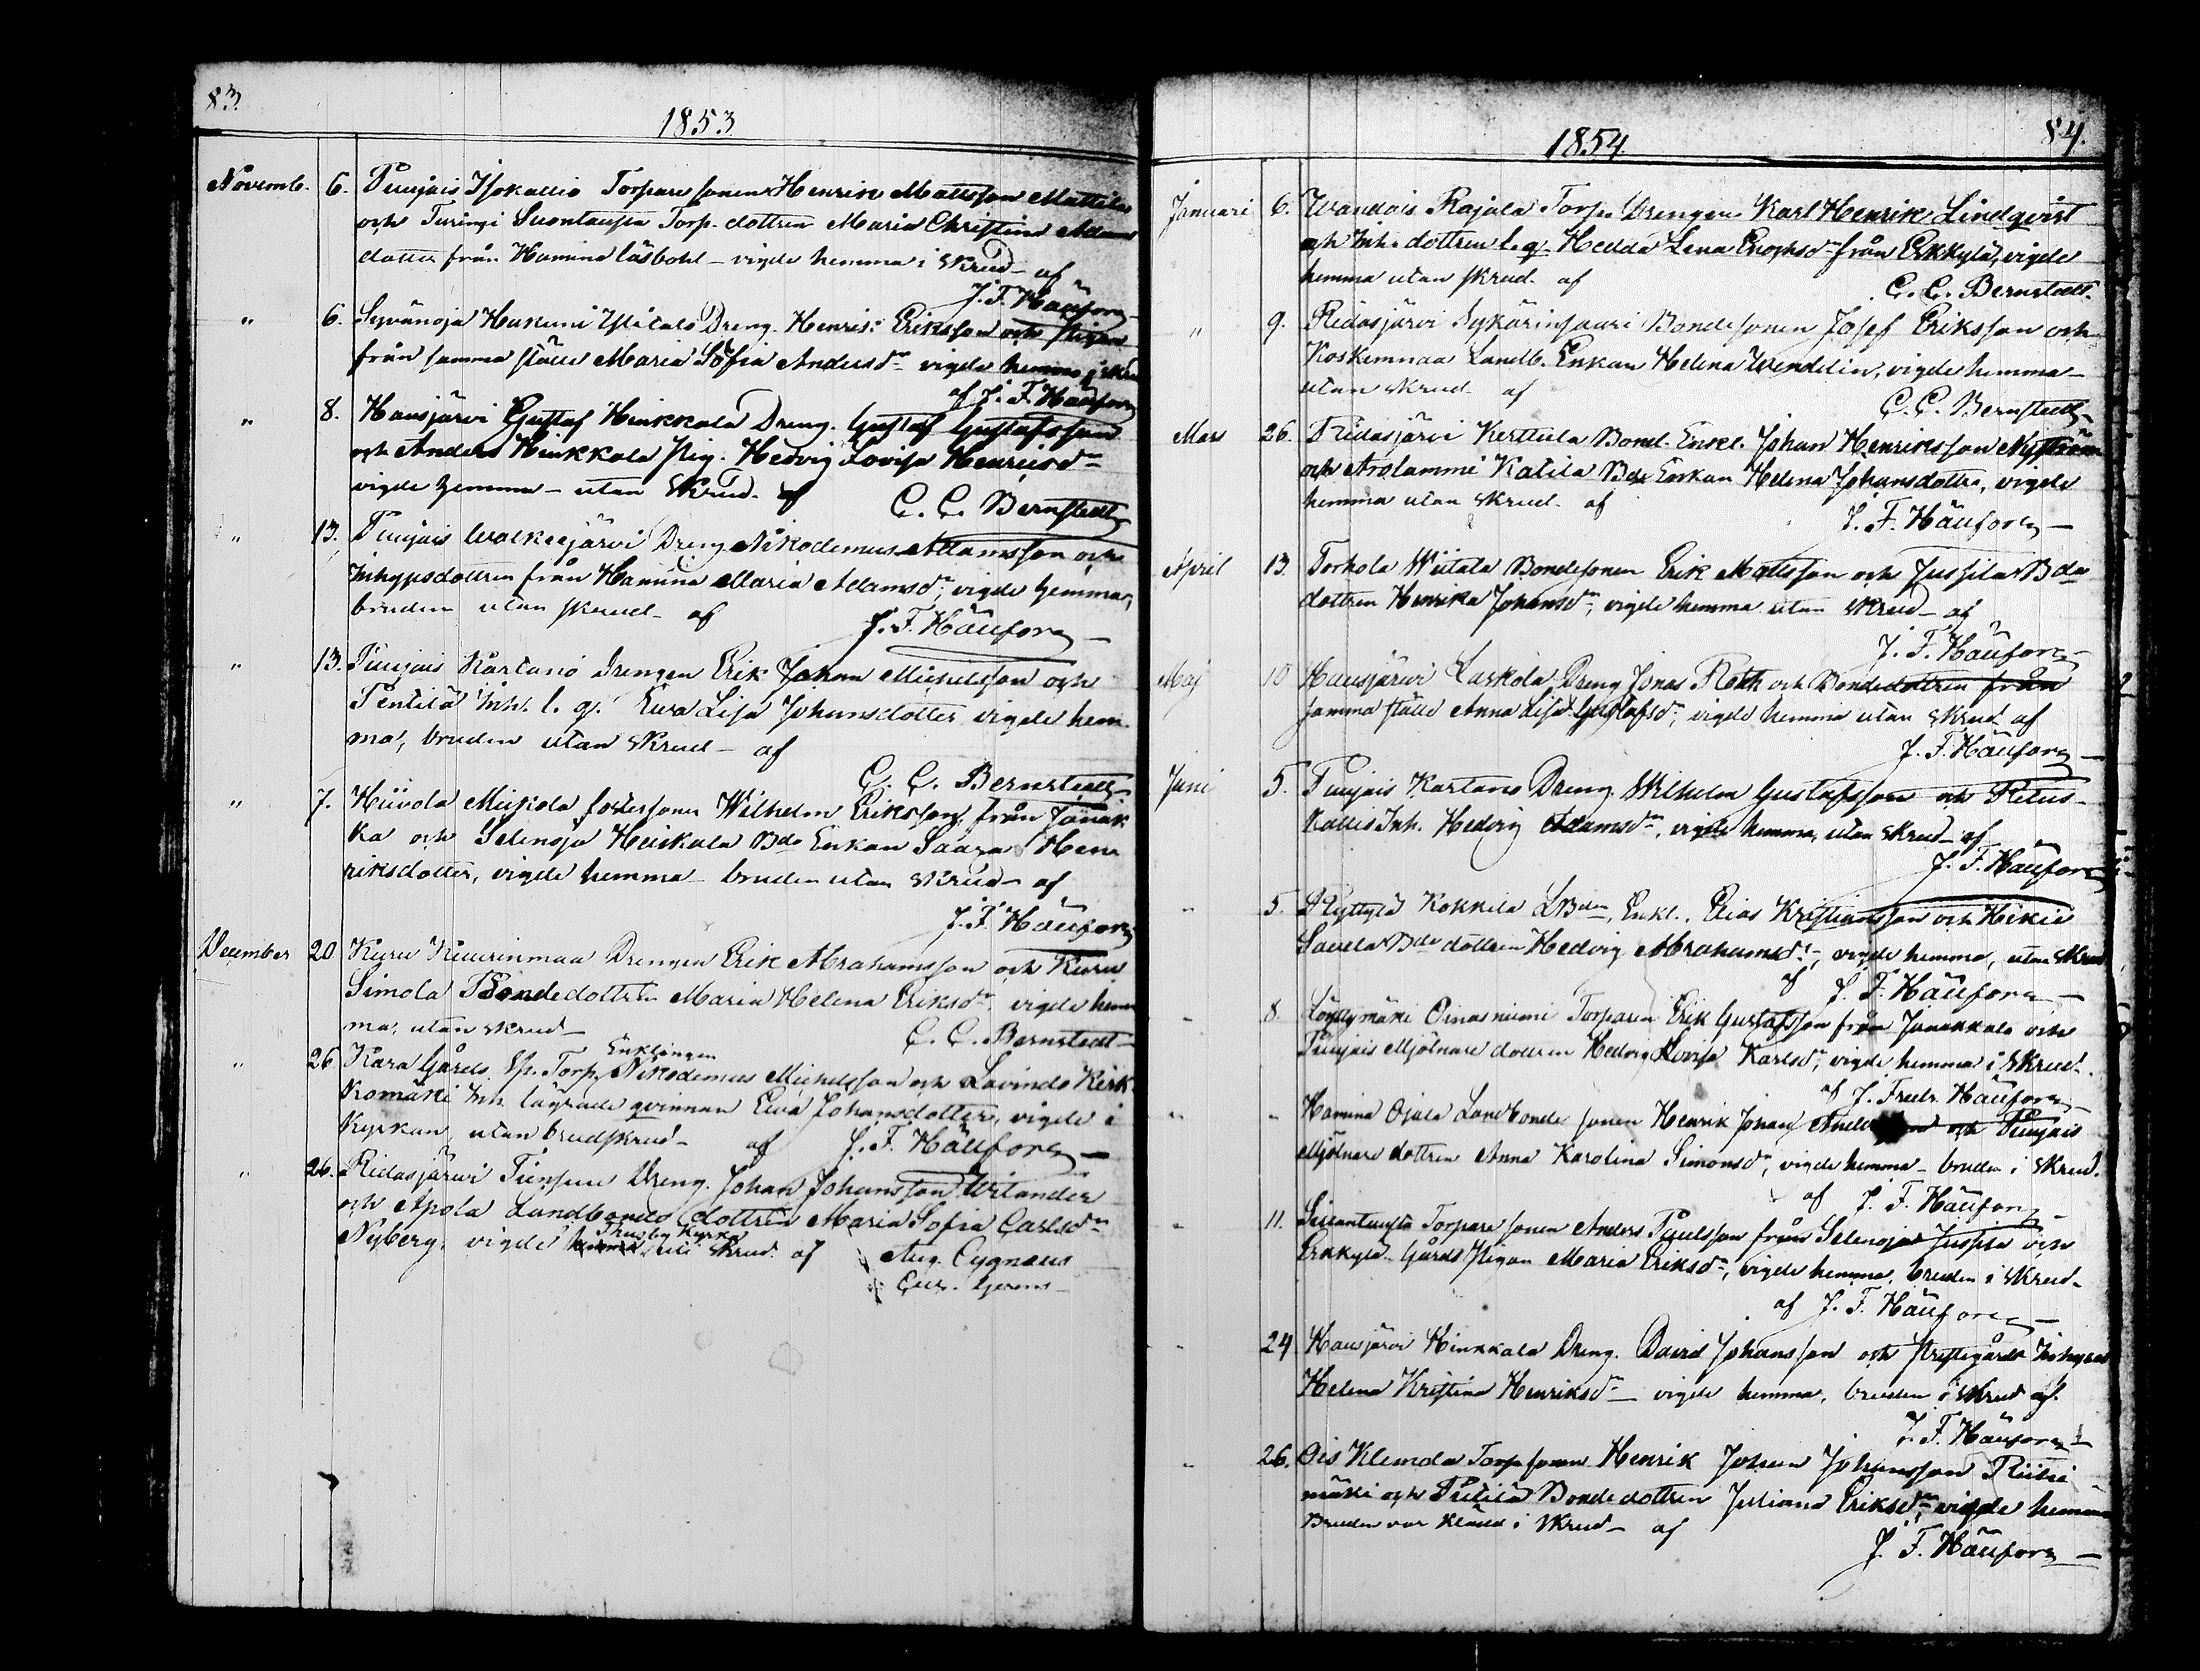 83.
1853
Novemb. 6. Puujais Isokallio Torpare sonen Henrik Mattsson Mattila
och Turingi Suontausta Torp. dottren Maria Christina Adams
dotter från Hamina låsbohl - vigde hemma i skrud - af
J. F. Häufore
" 6. Syvänoja Hukumi Ylitalo Dreng. Henrik Eriksson och pigan
från samma ställe Maria Sofia Andersdr vigde hemma i skrud
af J. F. Häufore
" 8. Hausjärvi Gustaf Hinkkala Dreng. Gustaf Gustafsson
och Anders Hinkkala Pig. Hedvig Lovisa Henriksdr
vigde hemma - utan Skrud - af C. C. Bernstedt
" 13. Puujais Walkeejärvi Dreng Nikodemus Adamsson och
Inhysesdottren från Hamina Maria Adamsdr, vigde hemma,
bruden utan skrud - af J. F. Häufore
" 13. Puujais Kartano Drengen Erik Johan Michelsson och
Pentilä Inh. l. q. Ewa Lisa Johansdotter, vigde hem-
ma, bruden utan skrud - af
C. C. Bernstedt
" 7. Hiivola Mickola fostersonen Wilhelm Eriksson, från Janak
ka och Selenoja Heikala Bde Enkan Saara Hen
riksdotter, vigde hemma - bruden utan skrud - af
J. F. Häufore
December 20. Kuru Kuurinmaa Drengen Erik Abrahamsson och Kuru
Simola Bondedottren Maria Helena Eriksdr, vigde hem
ma, utan skrud - C. C. Bernstedt
Enklingen
" 26 Kara Gårds Torp. Nikodemus Michelsson och Lavindo Kirk
komäki Inh. lägrade qvinnan Ewa Johansdotter, vigde i
Kyrkan, utan brudskrud - af J. F. Häufore
" 26. Ridasjärvi Dreng. Johan Johansson Wilander
och Apola Landbonde dottren Maria Sofia Carlsdr
Thusby Kyrka
Nyberg, vigde i skrud. af Aug. Cygnæus
84.
1854
Januari 6. Wandois Rajala Torp. Drengen Karl Henrik Lindqvist
och Inh. dottren l. q. Hedda Lena Enochsdr från Erkkylä, vigde
hemma utan skrud. af C. C. Bernstedt.
" 9. Ridasjärvi Sykärinsaari Bondesonen Josef Eriksson och
Koskenmaa Landb. Enkan Helena Wendelin, vigde hemma
utan skrud - af C. C. Bernstedt
Mars 26. Ridasjärvi Kerttula Bond. Enkl. Johan Henriksson Nyström
och Arolammi Katila Bde Enkan Helena Johansdotter, vigde
hemma utan skrud - af J. F. Häufore
April 13. Torhola Wiitala Bondesonen Erik Mattsson och Jussila Bde
dottren Henrika Johansdr, vigde hemma utan skrud - af
J. F. Häufore
Maj 10 Hausjärvi Laskola Dreng Jonas Roth och Bondedottren från
samma ställe Anna Lisa Gustafsdr, vigde hemma utan skrud af
J. F. Häufore
Juni 5. Puujais Kartano Dreng. Wilhelm Gustafsson och Petus-
kallio Inh. Hedvig Adamsdr, vigde hemma, utan skrud - af
J. F. Häufore
" 5. Ryttylä Kokkila LBden, Enkl. Elias Kristiansson och Hikiä
Saxela Bde dottren Hedvig Abrahamsdr, vigde hemma, utan skrud
af J. F. Häufore
" 8. Löyttymäki Oinasniemi Torparen Erik Gustafsson från Janakkala och
Puujais Mjölnare dottren Hedvig Lovisa Karlsdr, vigde hemma i skrud.
af J. Fredr. Häufore
" " Hamina Ojala Landbonde sonen Henrik Johan och Puujais
Mjölnare dottren Anna Karolina Simonsdr, vigde hemma - bruden i skrud.
af J. F. Häufore
" 11. Suontausta Torpare sonen Anders Paulsson från Selenoja Jussila och
Erkkylä Gårds Pigan Maria Eriksdr, vigde hemma, bruden i skrud -
af J. F. Häufore
" 24 Hausjärvi Hinkkala Dreng. David Johansson och Prestgårds Inhyses
Helena Kristina Henriksdr - vigde hemma, bruden i skrud af.
J. F. Häufore
" 26. Ois Klemola Torp. sonen Henrik Johan Johansson Riihi
mäki och Petilä Bondedottren Juliana Eriksdr, vigde hemma
Bruden var klädd i skrud - af
J. F. Häufore